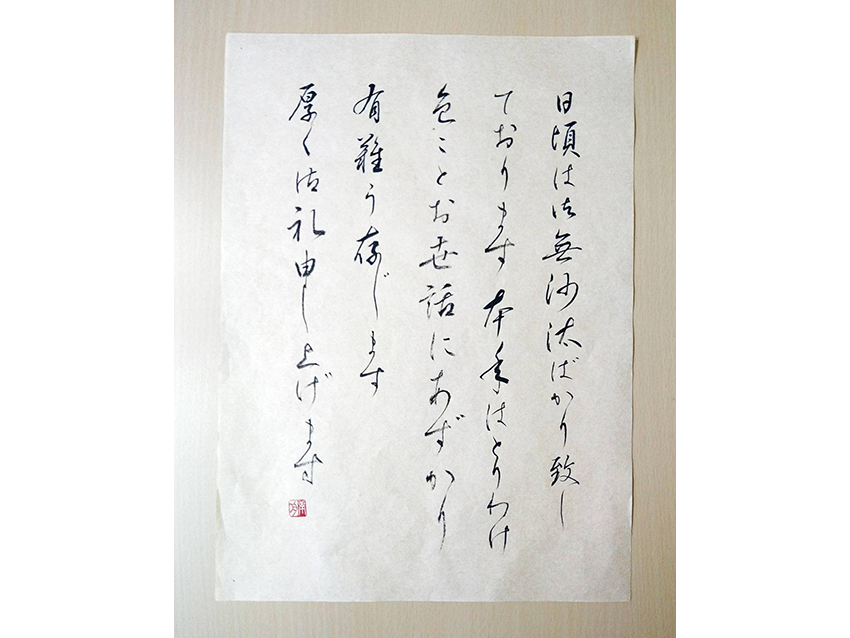 日頃は御無沙汰ばかり致し
ております 本年はとりわけ
色々とお世話にあずかり
有難う存じます
厚く御礼申し上げます